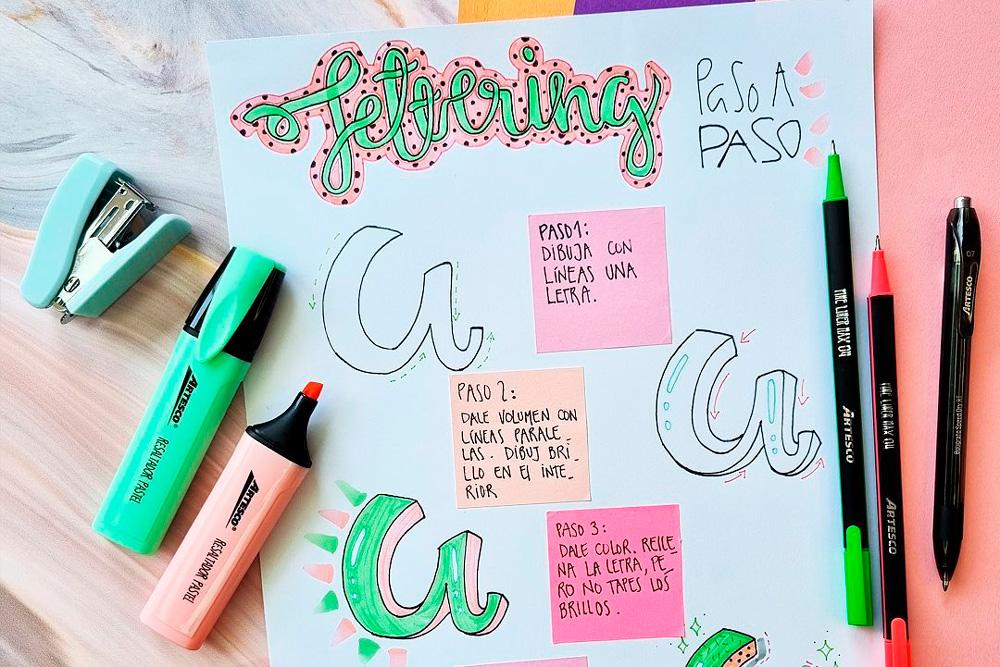 lettering
PASO A
PASO
PASO 1:
DIBUJA CON
LÍNEAS UNA
LETRA.
a
a
PASO 2:
DALE VOLUMEN CON
LÍNEAS PARALE_
LAS. DIBUJ BRI_
LLO EN El INTE_
RIOR
a
PASO 3:
DALE COLOR. RELLE_
NA LA LETRA, PE_
RO NO TAPES LOS
BRILLOS.
ARTESCO
RESALTADOR PASTEL
ARTESCO
RESALTADOR PASTEL
FINE LINER MAX 04
ARTESCO
FINE LINER MAX 04
ARTESCO
07
ARTESCO